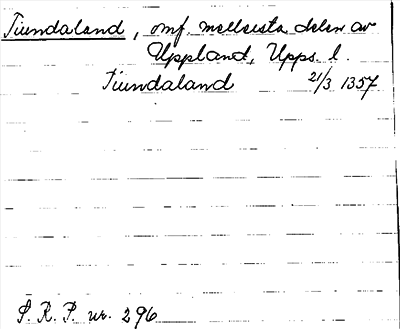 Tiundaland, omf. mellersta delen av
Uppland, Upps. l.
Tiundaland 21/3 1357
S. R. P. nr. 296